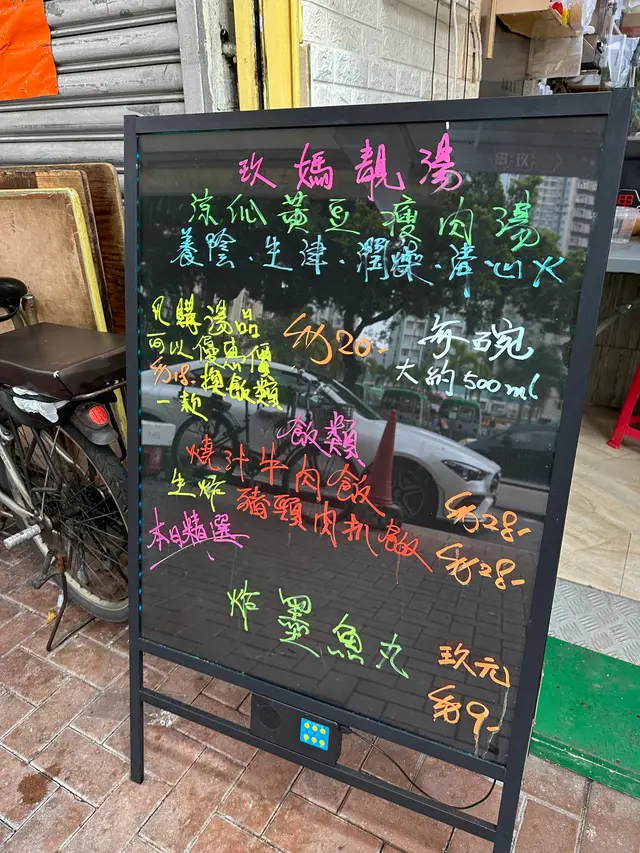 玖媽靚湯
涼瓜黃豆瘦肉湯
養陰·生津·潤燥·清心火
凡購湯品
可以優惠價
換飯類
一款
20-
每碗
大約500ml
飯類
燒汁牛肉飯
28-
生炸豬頸肉扒飯
28-
本日精選
炸墨魚丸
玖元
9-